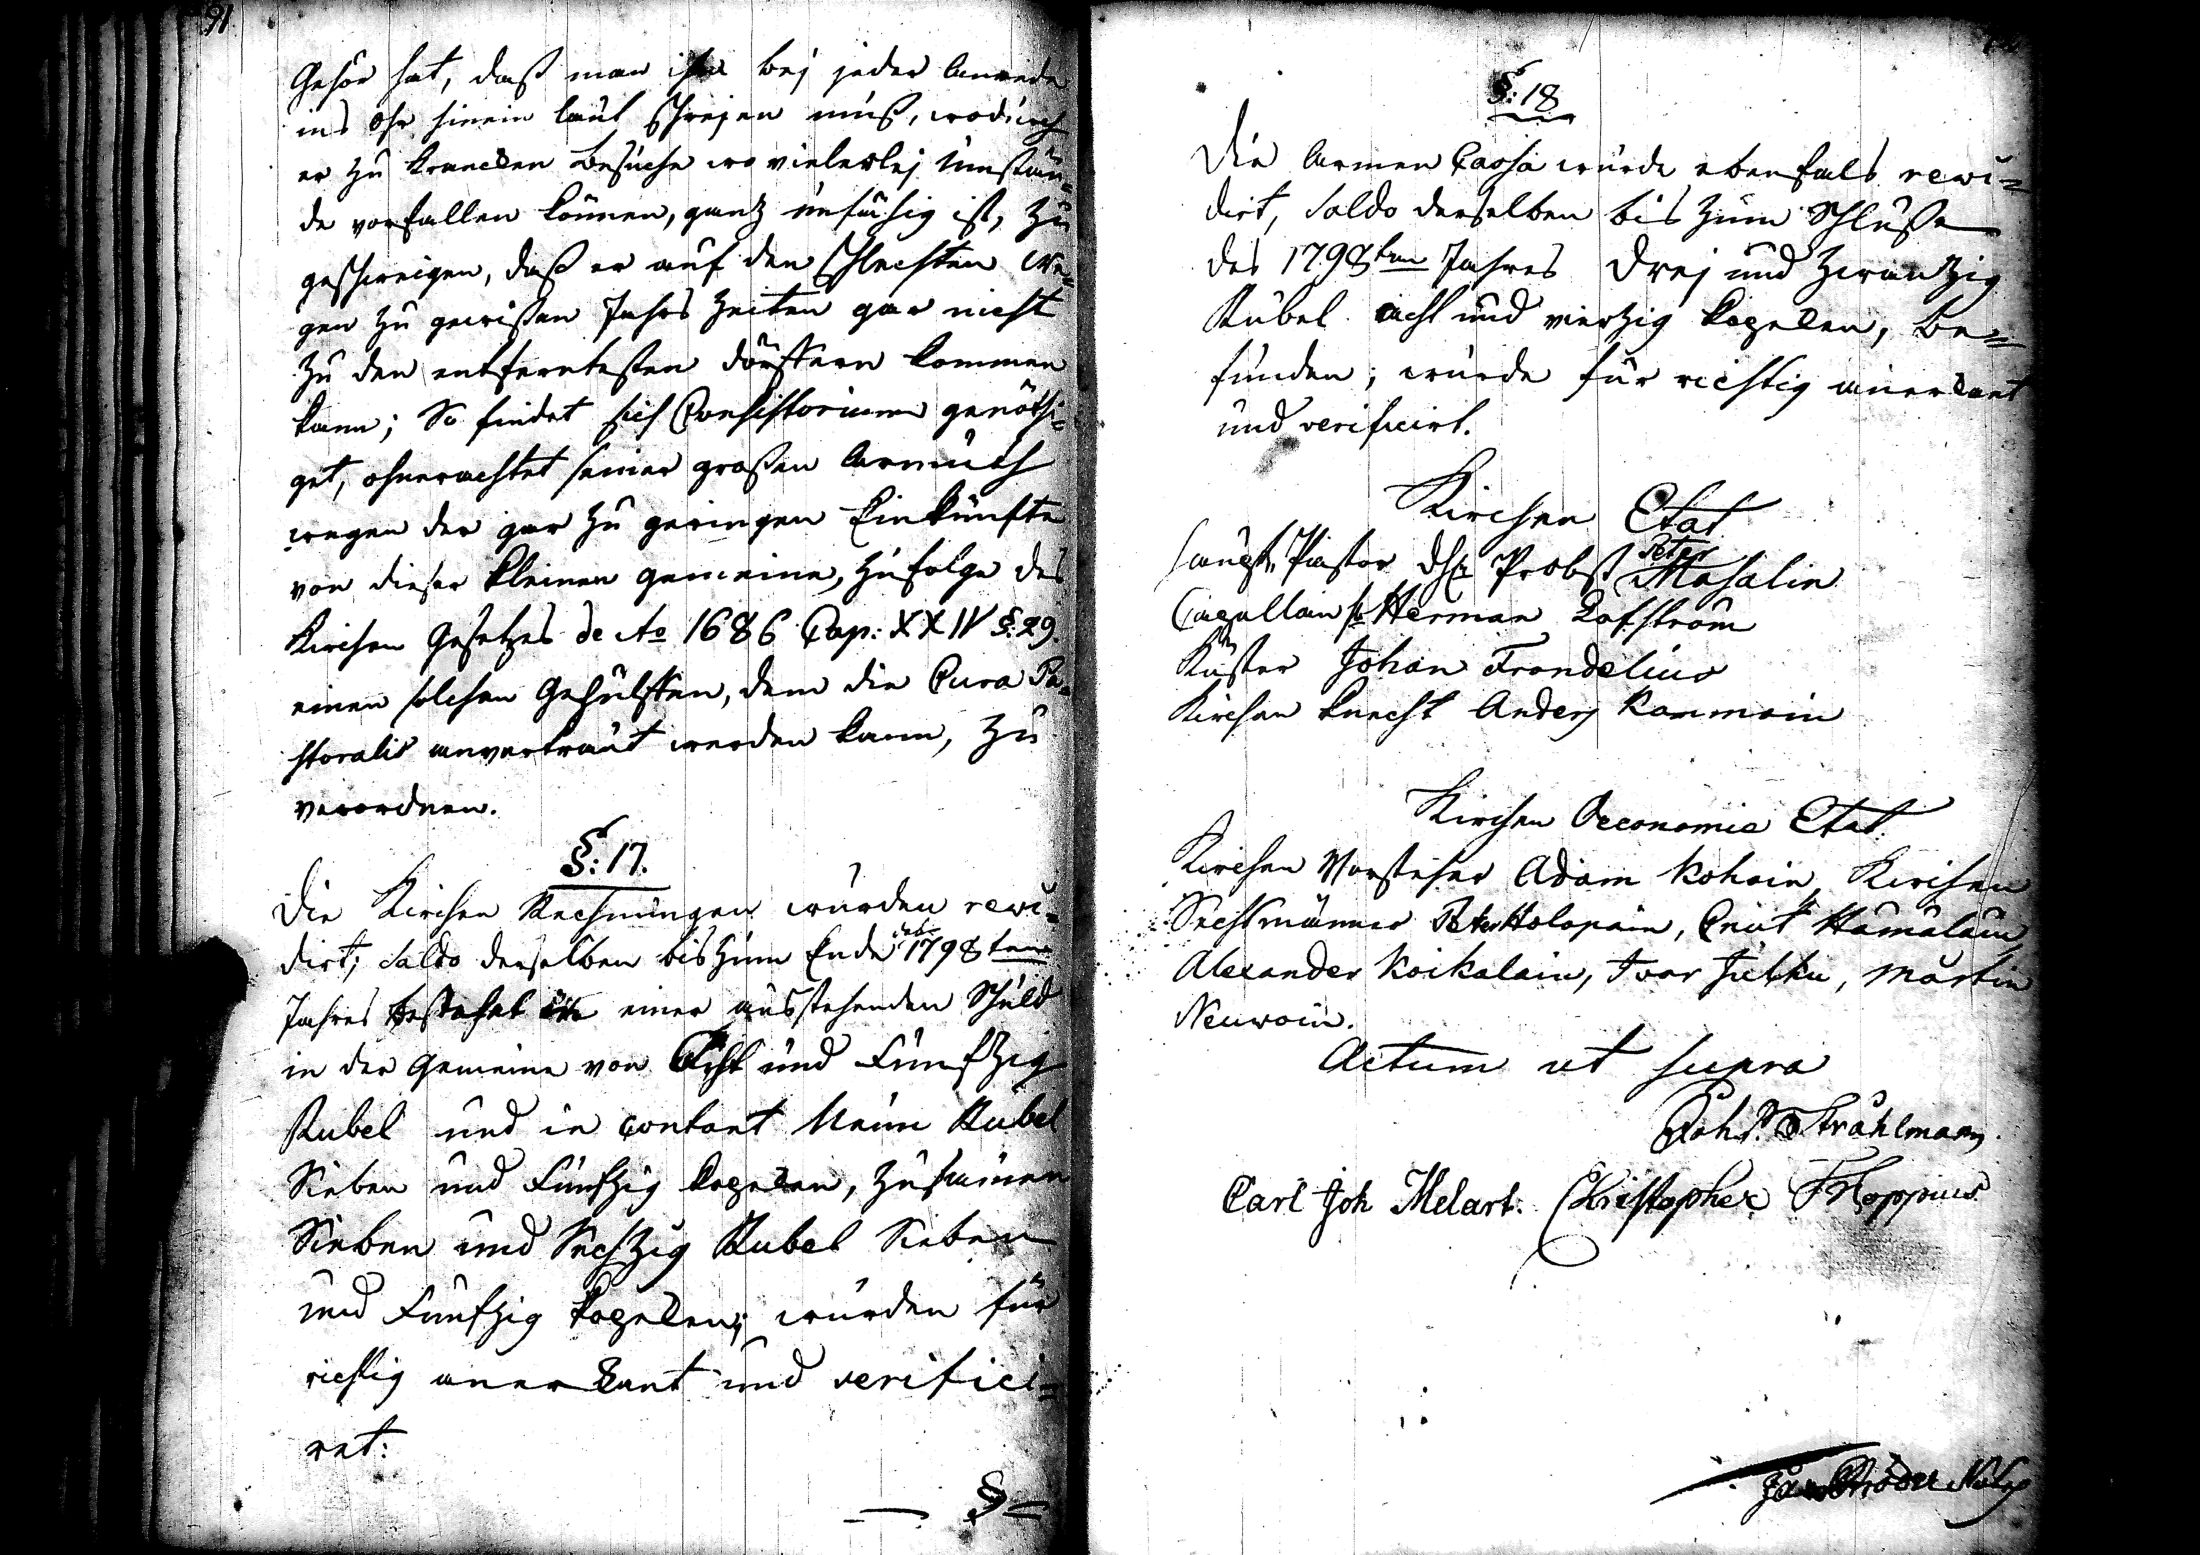 91
Gehör hat, daß man ihm bej jeder Anrede
ins Ohr hinein laut schrejen muß, wodurch
er zu Krancken Besuche wo vielerlej Umstän=
de vorfallen können, ganz unfähig ist, zu
geschweigen, daß er auf den schlechten We=
gen zu gewißen Jahrs Zeiten gar nicht
zu den entferntesten Dörffern kommen
kann; So findet sich Consistorium genöthi=
get, ohnerachtet seiner großen Armuth
wegen der gar zu geringen Einkünfte
von dieser kleinen Gemeine, zufolge des
Kirchen Gesetzes de Ao 1686 Cap: XXIV §: 29.
einen solchen Gehülffen, dem die Cura Pa=
storalis anvertraut werden kann, zu
verordnen.
§: 17.
Die Kirchen Rechnungen wurden rewi=
dirt; Saldo derselben bis zum Ende des 1798ten
Jahres bestehet in einer ausstehenden Schuld
in der Gemeine von Acht und Fünfzig
Rubel und in contant Neun Rubel
Sieben und Fünfzig Kopeken, zusamen
Sieben und Sechzig Rubel Sieben
und Fünfzig Kopeken; wurden für
richtig anerkant und verifici=
ret:
§
§: 18
Die Armen Cassa wurde ebenfals rewi=
dirt, Saldo derselben bis zum Schluße
des 1798ten Jahres Drej und Zwantzig
Rubel acht und viertzig Kopeken, be=
funden; wurde für richtig anerkant
und verificirt.
Kirchen Etat
Haupt Pastor Probst Peter Masalin
Capellain Herman Lofström
Küster Johan Frondelius
Kirchen Knecht Anders Rammoin
Kirchen Oeconomie Etat.
Kirchen Vorsteher Adam Kohoin, Kirchen
Sechsmänner Peter Holopain, Cnut Hämäläin,
Alexander Koikalain, Ivar Jutku, Martin
Neuwoin.
Actum ut supra
Joh: Strahlmann.
Carl Joh Melart. Christopher F Hoppius